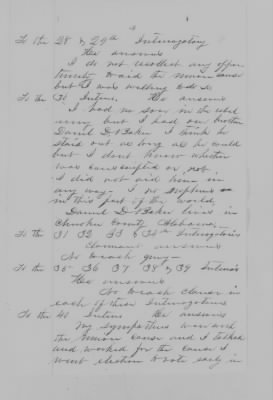 To the 28 & 29th Interrogatory
He answers
I do not recollect any oppor
tunity to aid the union cause
but I was willing to do so
To the 30 Interr, He answers
I had no son in the rebel
army but I had one brother
Daniel D. Baker I think he
staid out as long as he could
but I don't know whether
was conscripted or not
I did not aid him in
any way - I no nephews
in this part of the world,
Daniel D. Baker lives in
Cherokee County Alabama -
To the 31 32 33 & 34th Interrogatories
Claimant answers
No
To the 35- 36 37 38 & 39 Interrs
He answers
No to each clause in
each of these Interrogatories
To the 40 Interr He answers
My sympathies were with
the Union cause and I talked
and worked for the cause I
went election to vote early in